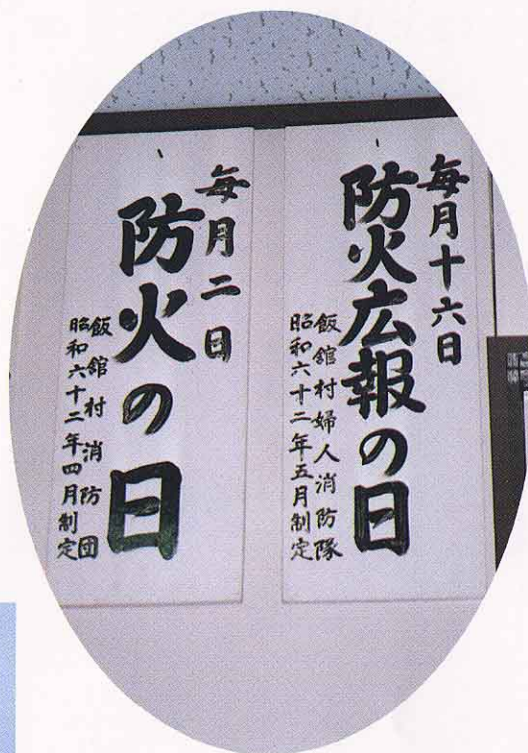 毎月十六日
防火広報の日
飯舘村婦人消防隊
昭和六十二年五月制定
毎月二日
防火の日
飯舘村消防団
昭和六十二年四月制定